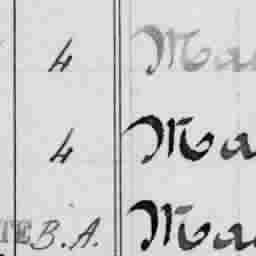 4 Ma
4 Ma
TE B.A. Ma